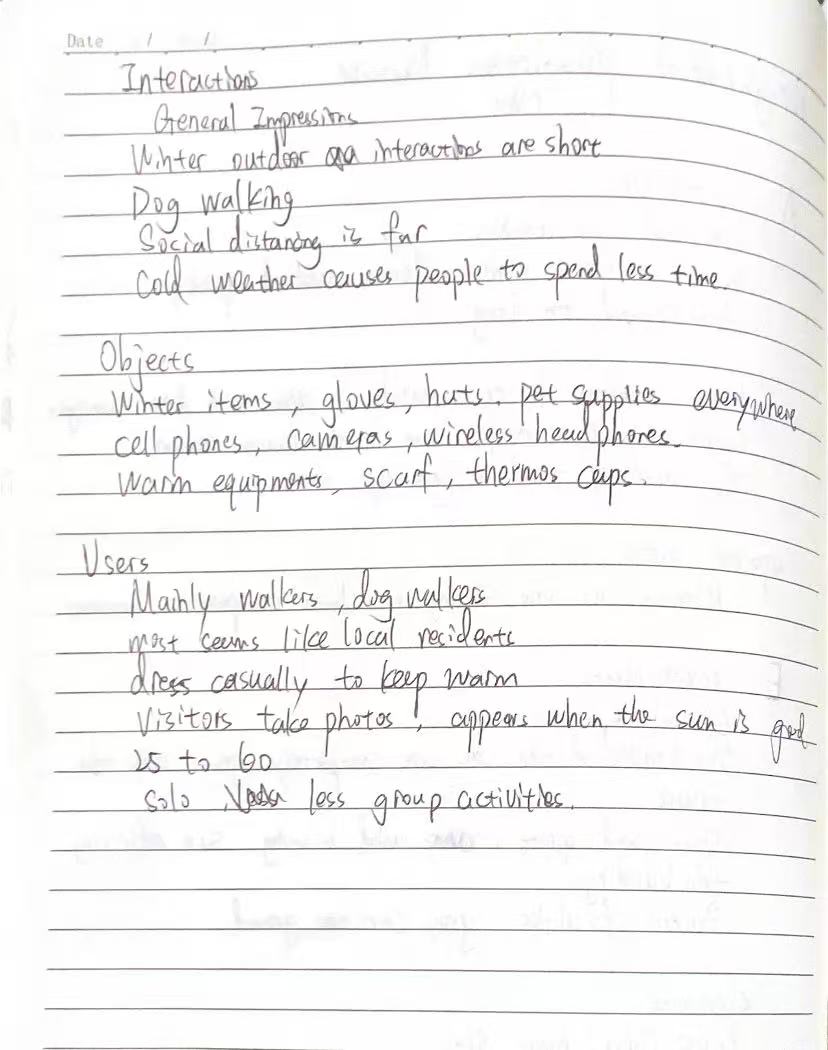 Date / /
Interactions
General Impressions
Winter outdoor interactions are short
Dog walking
Social distancing is far
Cold weather causes people to spend less time.
Objects
Winter items, gloves, hats. pet supplies everywhere
cell phones, cameras, wireless headphones.
Warm equipments, scarf, thermos cups.
Users
Mainly walkers, dog walkers
most seems like local residents
dress casually to keep warm
Visitors take photos, appears when the sun is good
25 to 60
Solo, less group activities.